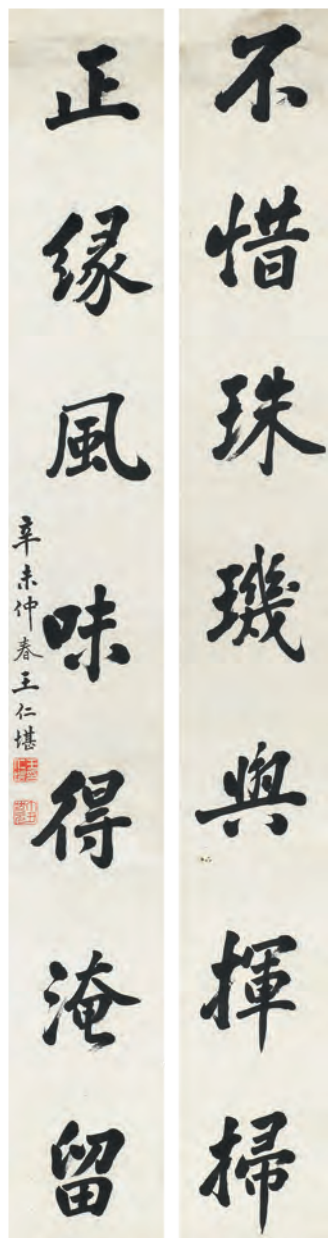 不惜珠璣與揮掃
正緣風味得淹留
辛未仲春王仁堪